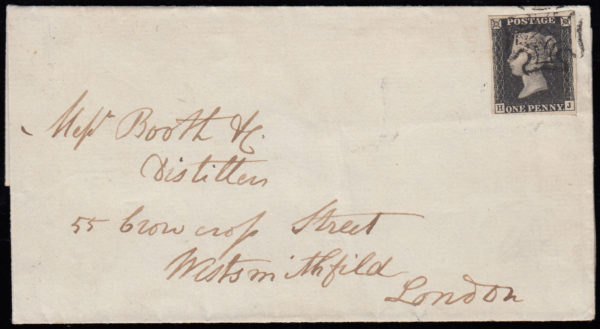 POSTAGE
H J
ONE PENNY
Messrs Booth & C.
Distillers
55 Cow cross Street
Westsmithfild
London